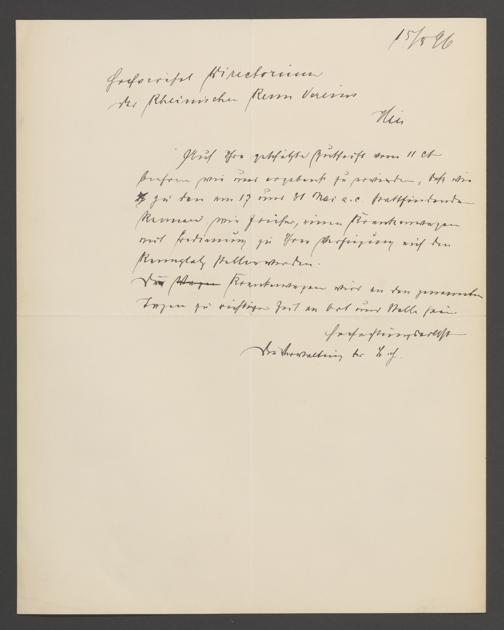 15/5 96
Hochverehrl Directorium
des Rheinischen Renn Vereins
Hier
Auf Ihre geschätzte Zuschrift vom 11 ct
beehren wir uns ergebenst zu erwidern, daß wir
zu den am 17 und 31 Mai a.c. stattfindenden
Rennen, wie früher, einen Krankenwagen
mit Bedienung zu Ihrer Verfügung auf den
Rennplatz stellen werden.
Der Wagen Krankenwagen wird an den genannten
Tagen zu richtiger Zeit an Ort und Stelle sein
Hochachtungsvollst
Die Verwaltung der